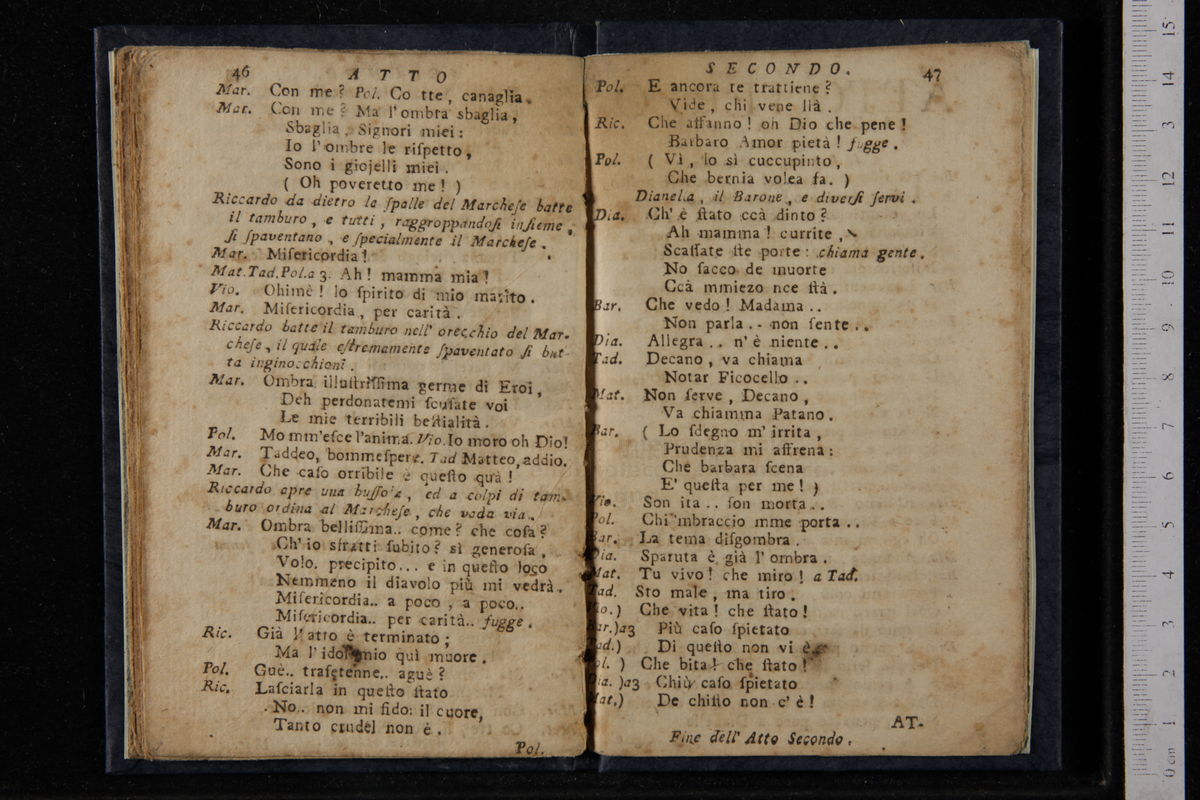 46
ATTO
Mar. Con me? Pol. Co tte, canaglia.
Mar. Con me? Ma l'ombra sbaglia,
Sbaglia, Signori miei:
Io l'ombre le riſpetto,
Sono i giojelli miei.
( Oh poveretto me! )
Riccardo da dietro le ſpalle del Marcheſe batte
il tamburo, e tutti, raggroppandoſi inſieme,
ſi ſpaventano, e ſpecialmente il Marcheſe.
Mar. Miſericordia!
Mat.Tad.Pol.a 3. Ah! mamma mia!
Vio. Ohimè! lo ſpirito di mio marito.
Mar. Miſericordia, per carità.
Riccardo batte il tamburo nell' orecchio del Mar-
cheſe, il quale eſtremamente ſpaventato ſi but-
ta inginocchioni.
Mar. Ombra illuſtriſſima germe di Eroi,
Deh perdonatemi ſcuſate voi
Le mie terribili beſtialità.
Pol. Mo mm'eſce l'anima. Vio. Io moro oh Dio!
Mar. Taddeo, bommeſpere. Tad Matteo, addio.
Mar. Che caſo orribile è queſto quà!
Riccardo apre una buſſola, ed a colpi di tam-
buro ordina al Marcheſe, che vada via.
Mar. Ombra belliſſima.. come? che coſa?
Ch' io sfratti ſubito? sì generoſa,
Volo. precipito... e in queſto loco
Nemmeno il diavolo più mi vedrà.
Miſericordia.. a poco, a poco..
Miſericordia.. per carità.. fugge.
Ric. Già l'atto è terminato;
Ma l'idol mio quì muore.
Pol. Guè.. traſetenne.. aguè?
Ric. Laſciarla in queſto ſtato
No.. non mi fido: il cuore,
Tanto crudel non è.
Pol.
SECONDO.
47
Pol. E ancora te trattiene?
Vide, chi vene llà.
Ric. Che affanno! oh Dio che pene!
Barbaro Amor pietà! fugge.
Pol. ( Vì, lo sì cuccupinto,
Che bernia volea fa. )
Dianella, il Barone, e diverſi ſervi.
Dia. Ch' è ſtato ccà dinto?
Ah mamma! currite,
Scaſſate ſte porte: chiama gente.
No ſacco de muorte
Ccà mmiezo nce ſtà.
Bar. Che vedo! Madama..
Non parla.. non ſente..
Dia. Allegra.. n' è niente..
Tad. Decano, va chiama
Notar Ficocello..
Mat. Non ſerve, Decano,
Va chiamma Patano.
Bar. ( Lo ſdegno m' irrita,
Prudenza mi affrena:
Che barbara ſcena
E' queſta per me! )
Vio. Son ita.. ſon morta..
Pol. Chi 'mbraccio mme porta..
Bar. La tema diſgombra.
Dia. Sparuta è già l' ombra.
Mat. Tu vivo! che miro! a Tad.
Tad. Sto male, ma tiro.
Vio.) Che vita! che ſtato!
Bar.)a3 Più caſo ſpietato
Tad.) Di queſto non vi è.
Pol. ) Che bita! che ſtato!
Dia. )a3 Chiù caſo ſpietato
Mat.) De chiſto non c' è!
AT-
Fine dell' Atto Secondo.